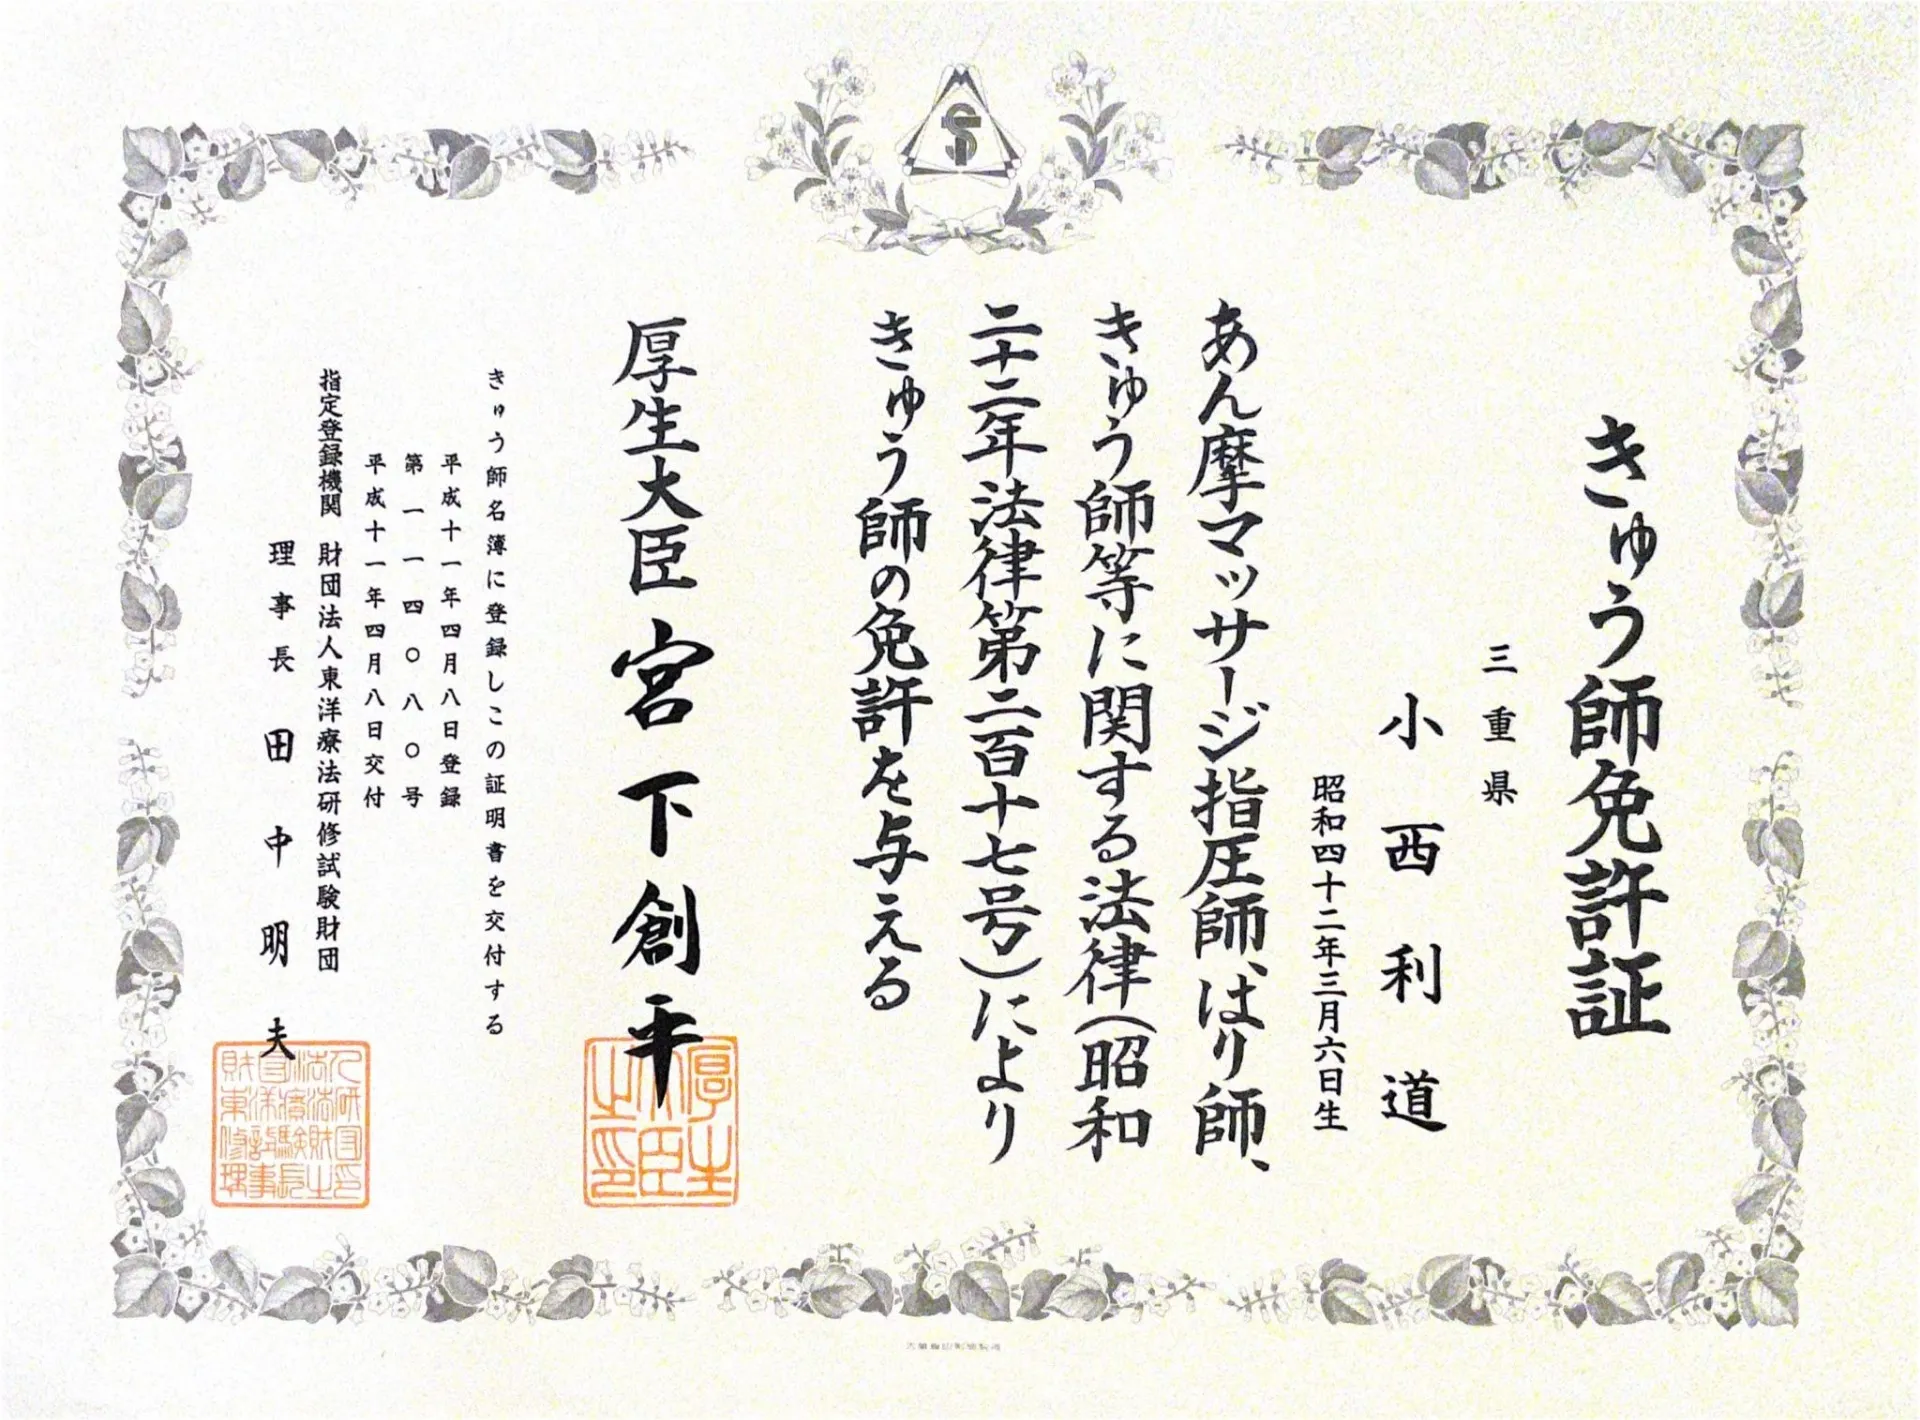 きゅう師免許証
三重県
小西利道
昭和四十二年三月六日生
あん摩マッサージ指圧師、はり師、
きゅう師等に関する法律（昭和
二十二年法律第二百十七号）により
きゅう師の免許を与える
厚生大臣 宮下創平
厚生大臣之印
きゅう師名簿に登録しこの証明書を交付する
平成十一年四月八日登録
第一一四〇八〇号
平成十一年四月八日交付
指定登録機関 財団法人東洋療法研修試験財団
理事長 田中明夫